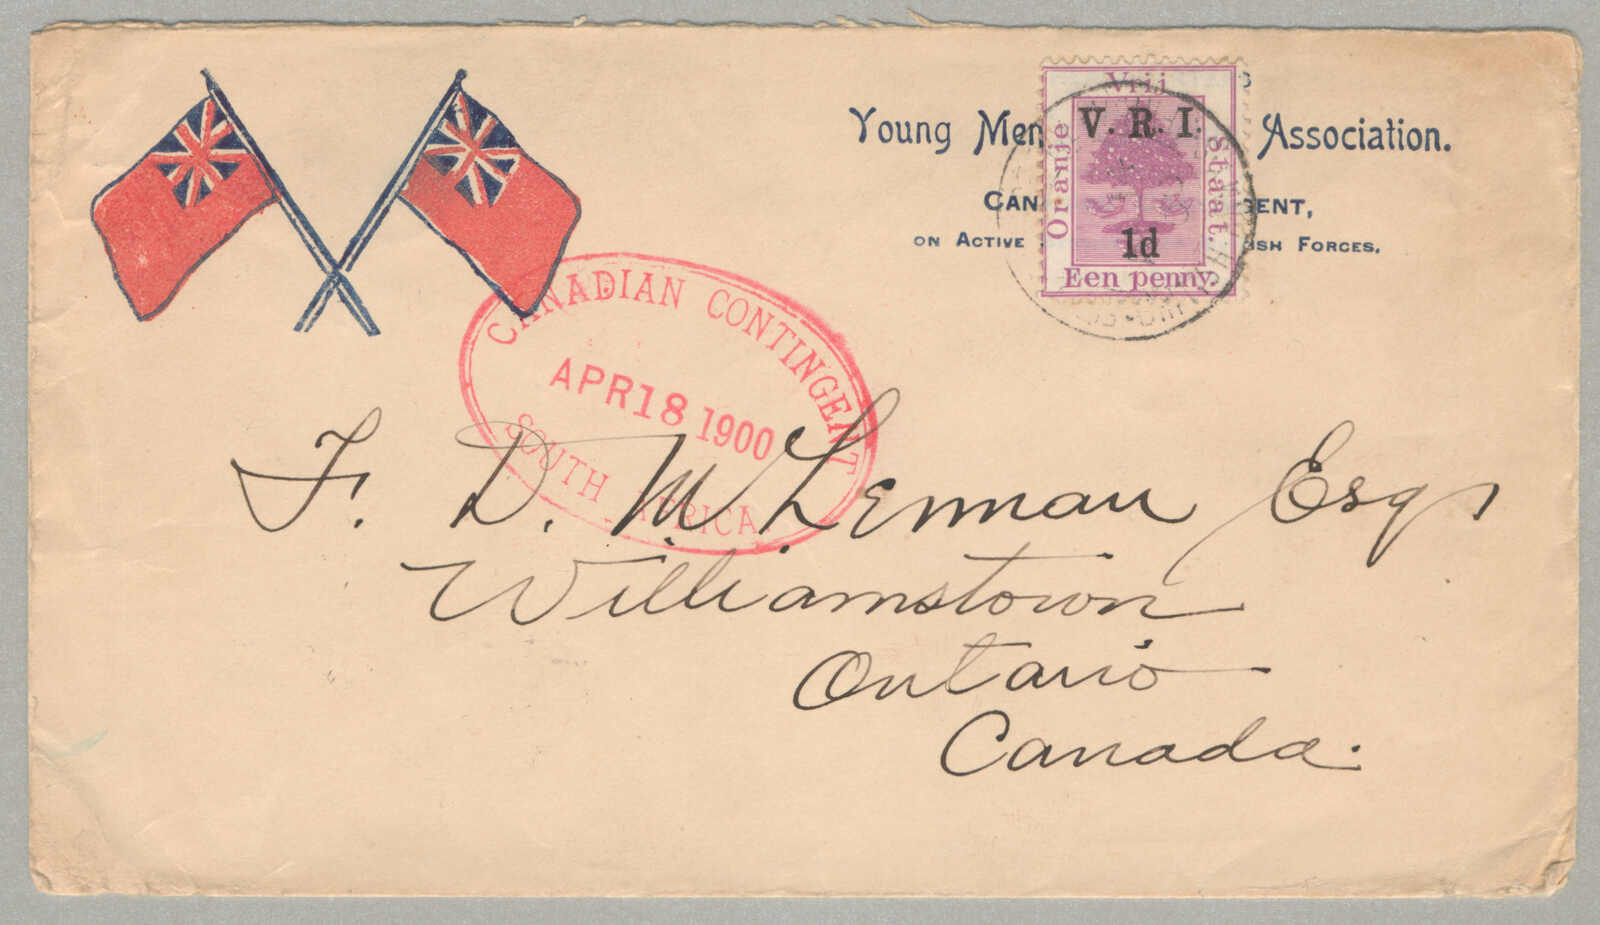 Young Men Association.
CAN ENT,
ON ACTIVE SH FORCES.
Vrij
Oranje
Staat.
V. R. I.
1d
Een penny.
CANADIAN CONTINGENT
APR 18 1900
SOUTH AFRICA
F. D. McLennan Esq
Williamstown
Ontario
Canada.